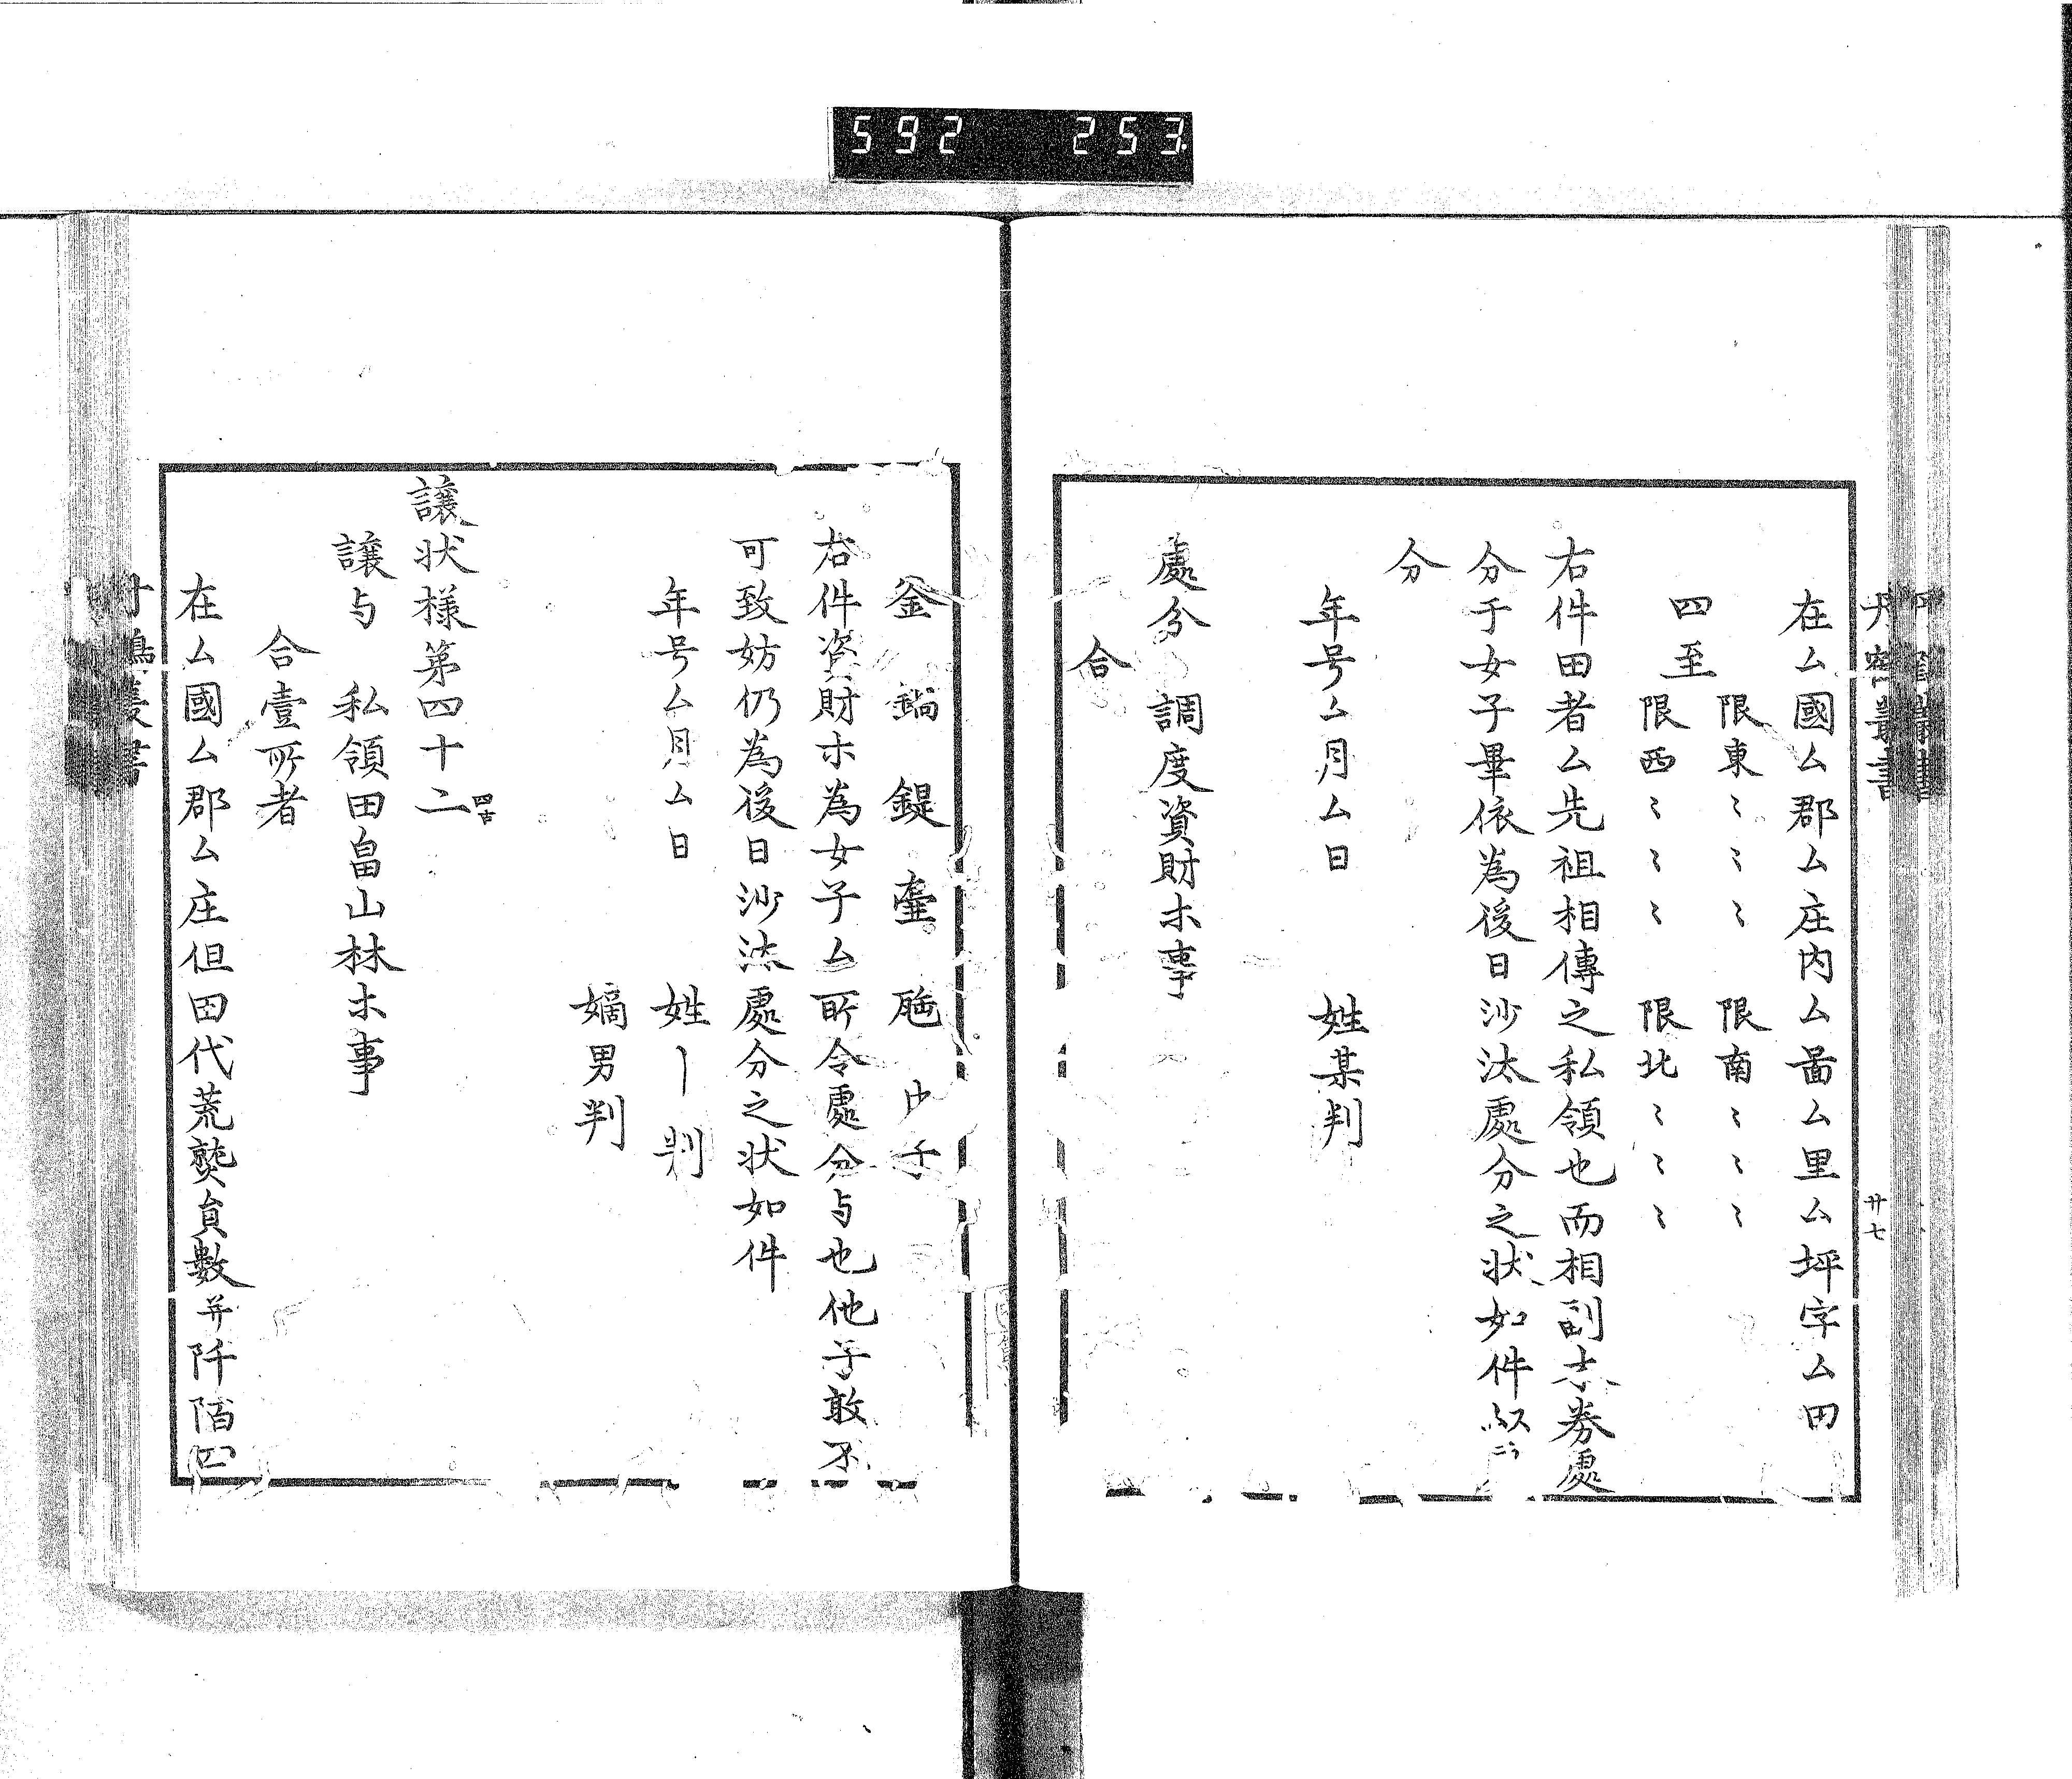 592 253
丹鶴叢書
廿七
在ム國ム郡ム庄内ム啚ム里ム坪字ム田
四至
限東〻〻〻 限南〻〻〻
限西〻〻〻 限北〻〻〻
右件田者ム先祖相傳之私領也而相副本券處
分于女子畢依為後日沙汰處分之状如件
分
年号ム月ム日 姓某判
處分 調度資財木事
合
釜 鍋 鍉 壷
右件資財木為女子ム所令處分与也他子敢不
可致妨仍為後日沙汰處分之状如件
年号ム月ム日 姓〡判
嫡男判
譲状様第四十二
譲与 私領田畠山林木事
合壹所者
在ム國ム郡ム庄但田代荒㷼員數并阡陌四
丹鶴叢書